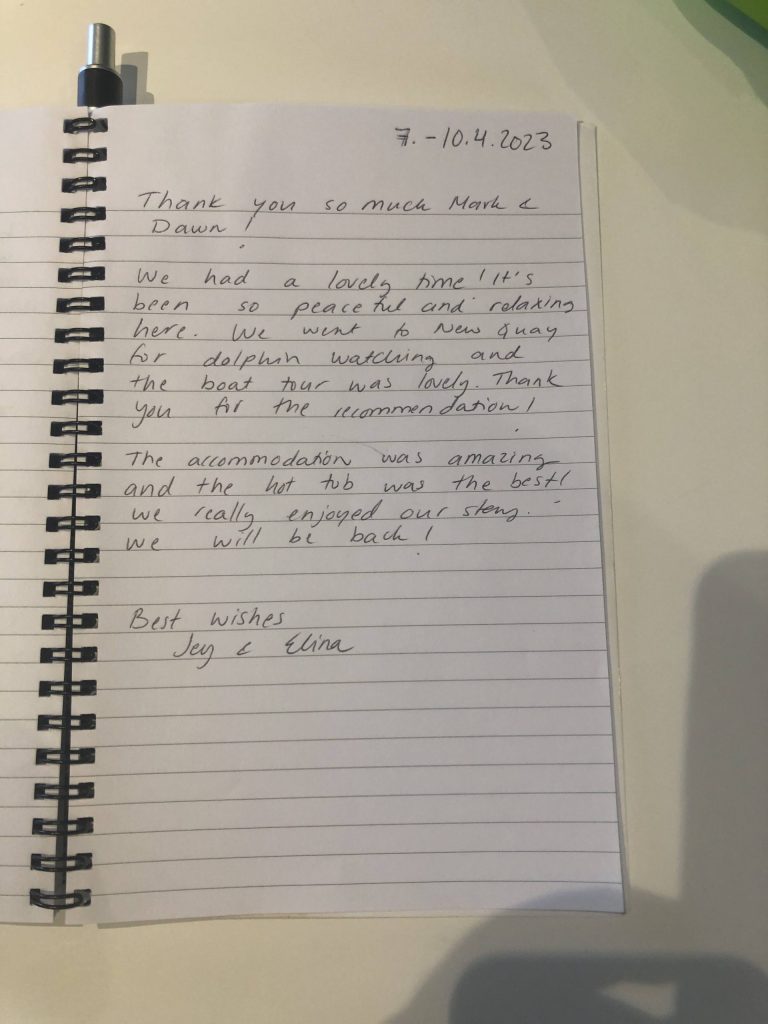 7.-10.4.2023
Thank you so much Mark &
Dawn!
We had a lovely time! It's
been so peaceful and relaxing
here. We went to New Quay
for dolphin watching and
the boat tour was lovely. Thank
you for the recommendation!
The accommodation was amazing
and the hot tub was the best!
We really enjoyed our stay.
We will be back!
Best wishes
Jey & Elina